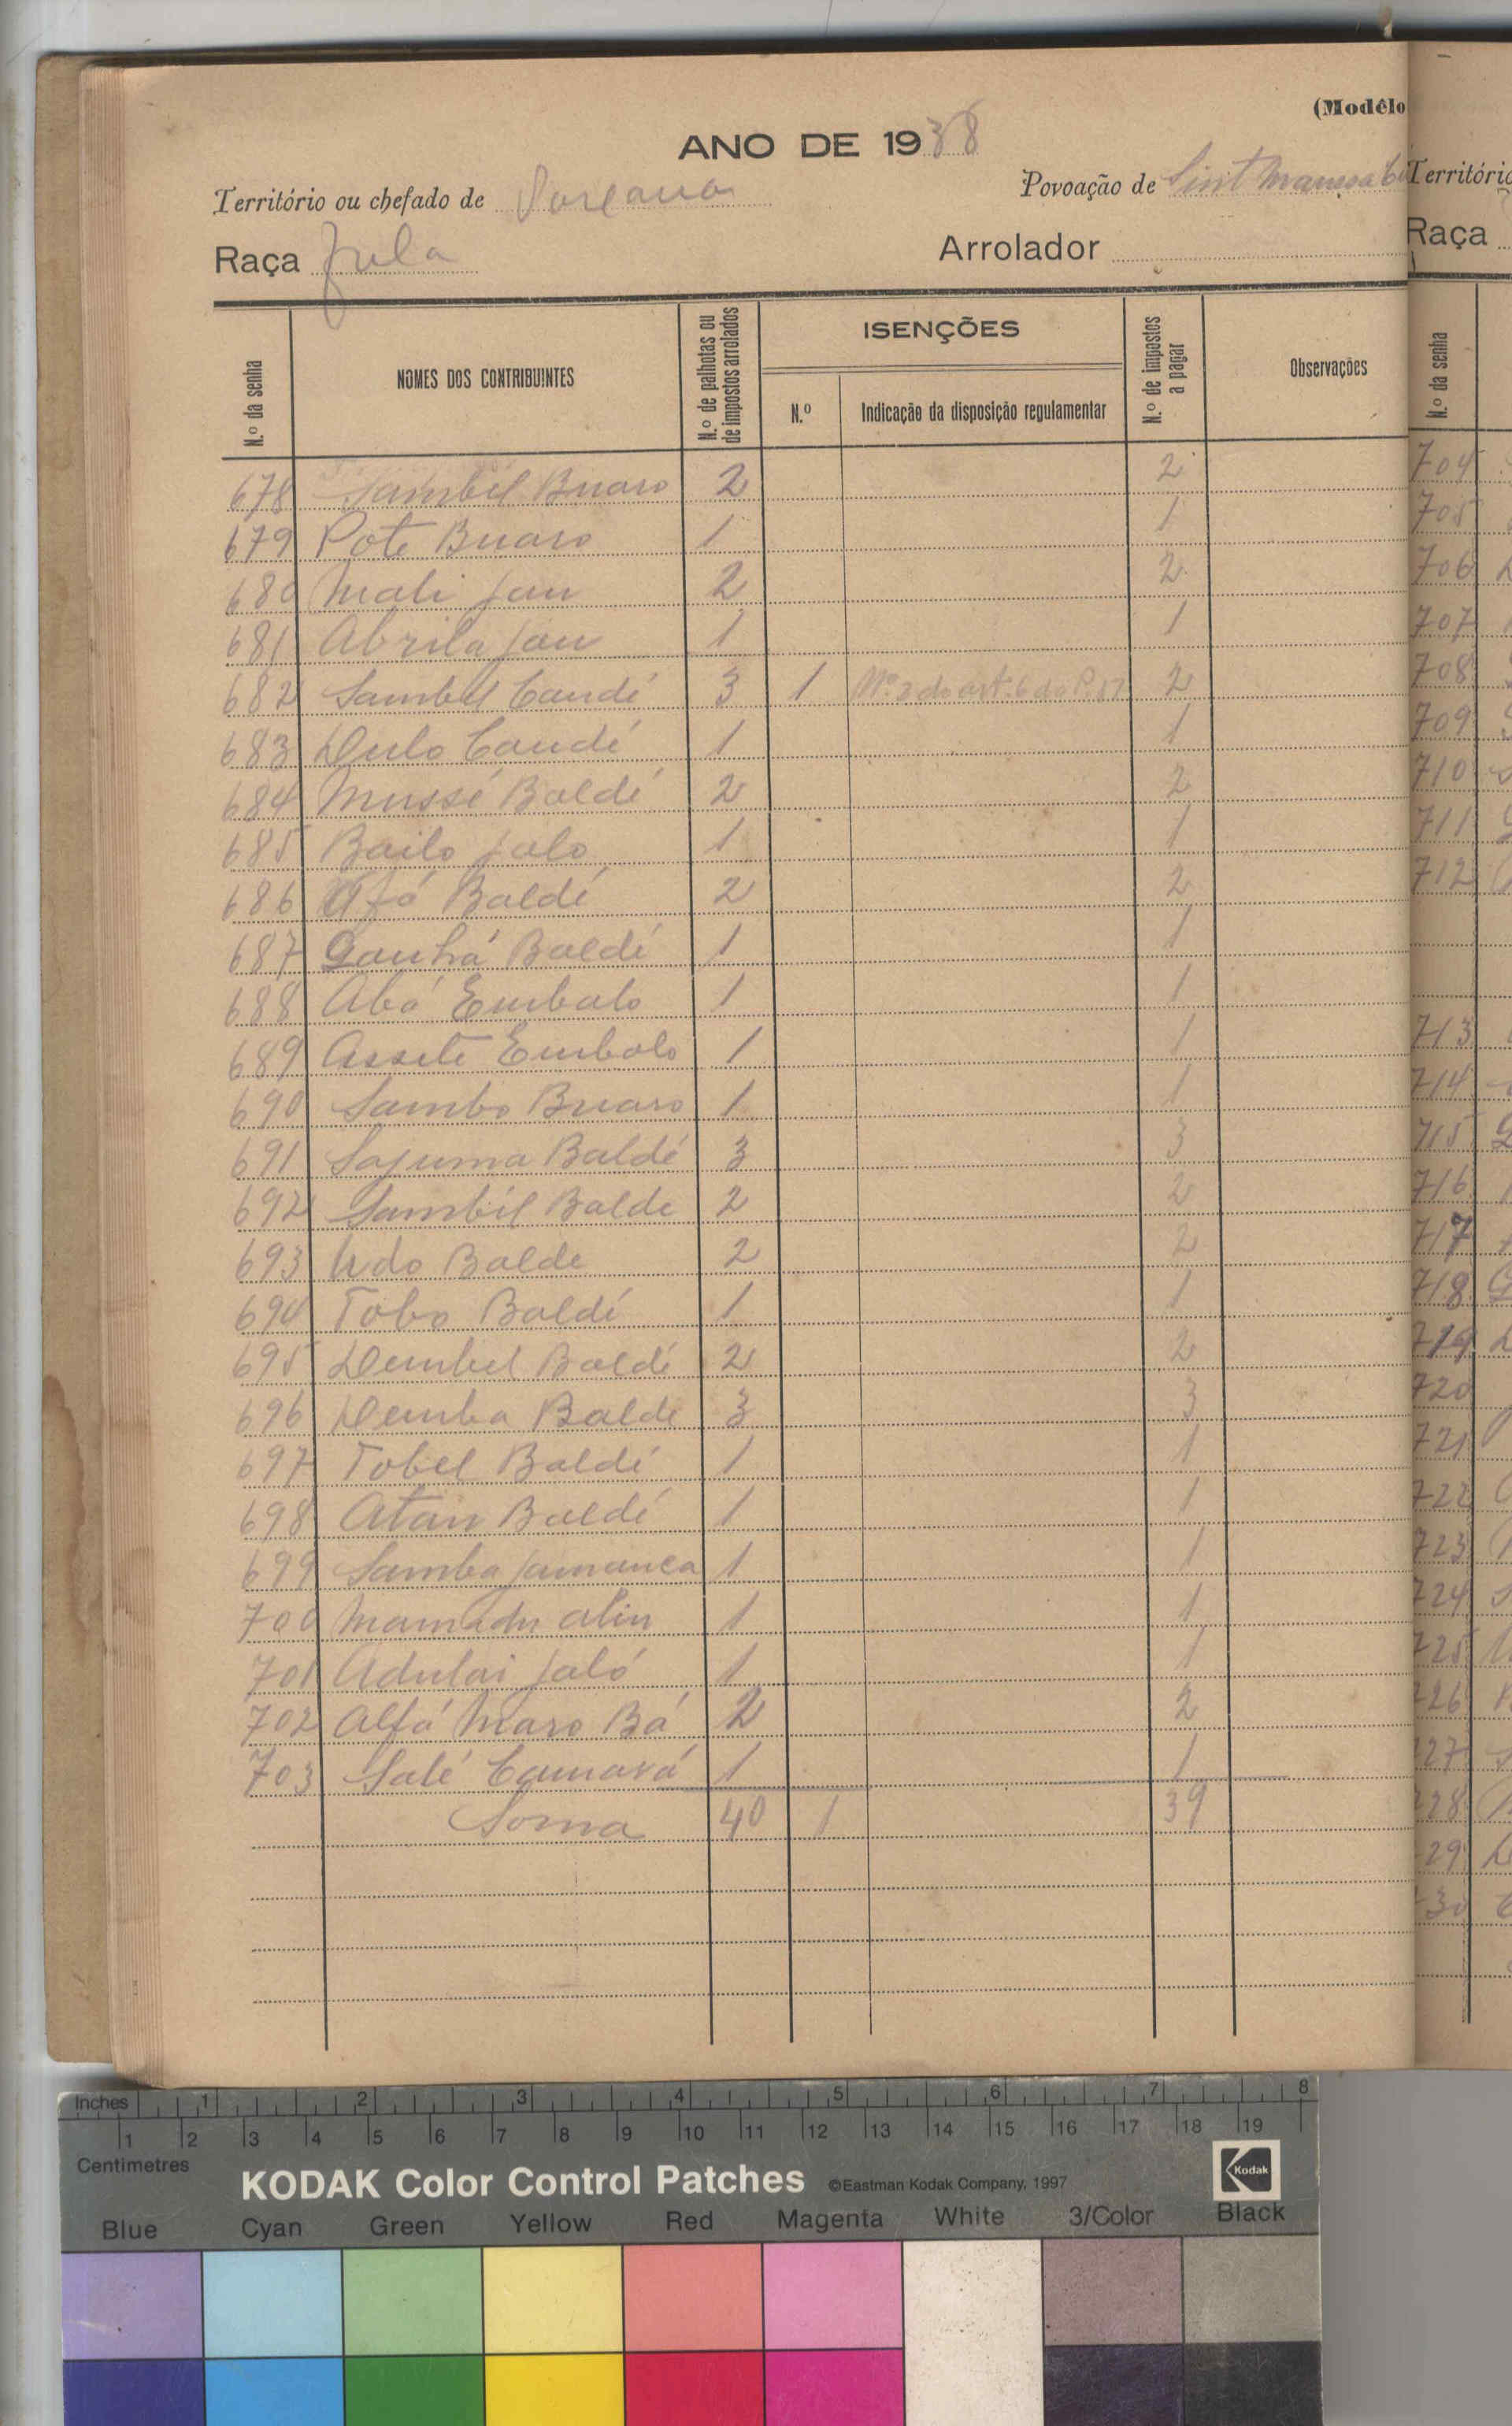 (Modêlo
ANO DE 1938
Território ou chefado de
Povoação de Sint
Raça Fula
Arrolador
N.º da senha
NOMES DOS CONTRIBUINTES
N.º de palhotas ou de impostos arrolados
ISENÇÕES
N.º
Indicação da disposição regulamentar
N.º de impostos a pagar
Observações
678 Sambél Buaro 2 2
679 Pote Buaro 1 1
680 Mali Jau 2 2
681 Abrila Jau 1 1
682 Sambel Candé 3 1 Nº 2 do art. 6 do P. 87 2
683 Dulo Candé 1 1
684 Mussé Baldé 2 2
685 Bailo Jalo 1 1
686 Baldé 2 2
687 Ganhá Baldé 1 1
688 Abó Embalo 1 1
689 Assete Embalo 1 1
690 Sambo Buaro 1 1
691 Sajuma Baldé 3 3
692 Sambél Balde 2 2
693 Udo Balde 2 2
694 Tobo Baldé 1 1
695 Dembel Baldé 2 2
696 Demba Balde 3 3
697 Tobel Baldé 1 1
698 Atan Baldé 1 1
699 Samba Jamanca 1 1
700 Mamadu Aliu 1 1
701 Adulai Jaló 1 1
702 Alfá Maro Bá 2 2
703 Salé Camará 1 1
Soma 40 1 39
Território
Raça
N.º da senha
704
705
706
707
708
709
710
711
712
713
714
715
716
717
718
719
720
721
722
723
724
725
726
727
728
729
730
Inches 1 2 3 4 5 6 7 8
1 2 3 4 5 6 7 8 9 10 11 12 13 14 15 16 17 18 19
Centimetres
KODAK Color Control Patches ©Eastman Kodak Company, 1997 Kodak
Blue Cyan Green Yellow Red Magenta White 3/Color Black